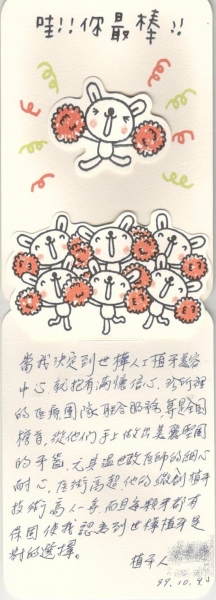 哇!!你最棒!!
當我決定到世樺人工植牙美容
中心,就抱有滿懷信心,診所裡
的醫療團隊聯合服務,算是全國
榜首,從他們手上做出美麗堅固
的牙齒,尤其溫世政醫師的細心
耐心,醫術高超,他的微創植牙
技術高人一等,而且每顆牙都有
保固,使我認為到世樺植牙是
對的選擇。
植牙人
99.10.9